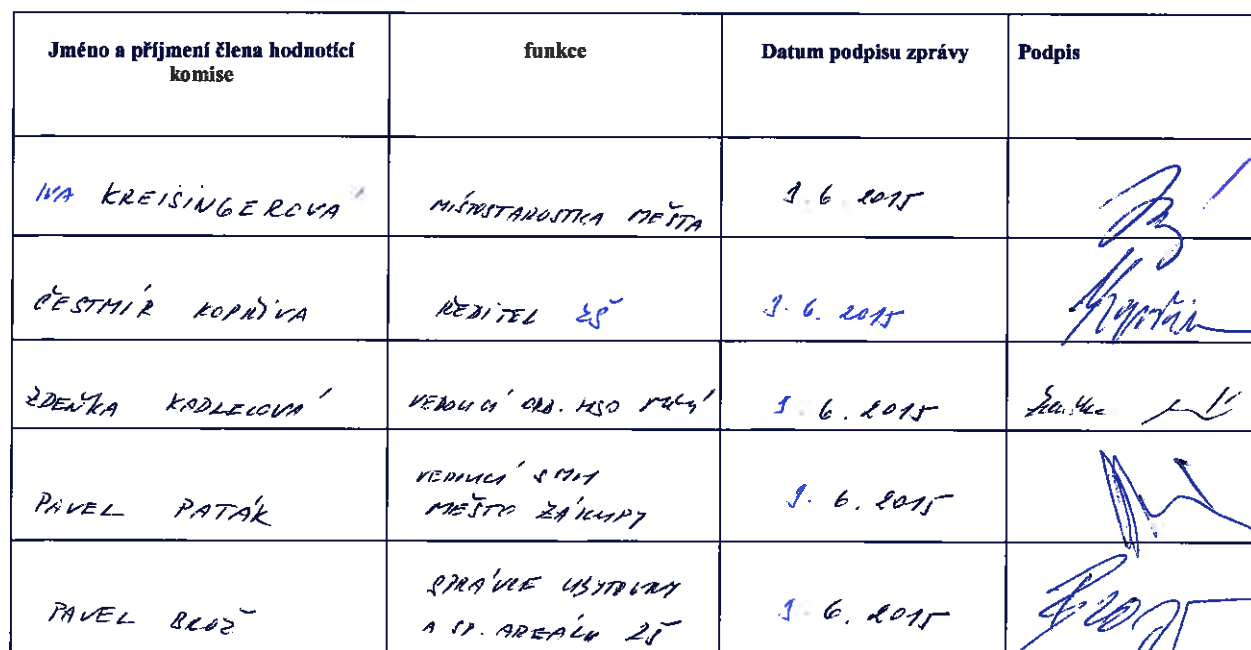 Jméno a příjmení člena hodnotící
komise
funkce
Datum podpisu zprávy
Podpis
IVA KREISINGEROVA
MÍSTOSTAROSTKA MĚSTA
1. 6. 2015
ČESTMÍR KOPŘIVA
ŘEDITEL ZŠ
1. 6. 2015
ZDEŇKA KADLECOVÁ
VEDOUCÍ
1. 6. 2015
PAVEL PATÁK
VEDOUCÍ SMM
MĚSTO ZÁKUPY
1. 6. 2015
PAVEL BROŽ
SPRÁVCE UBYTOVNY
A SP. AREÁLU ZŠ
1. 6. 2015